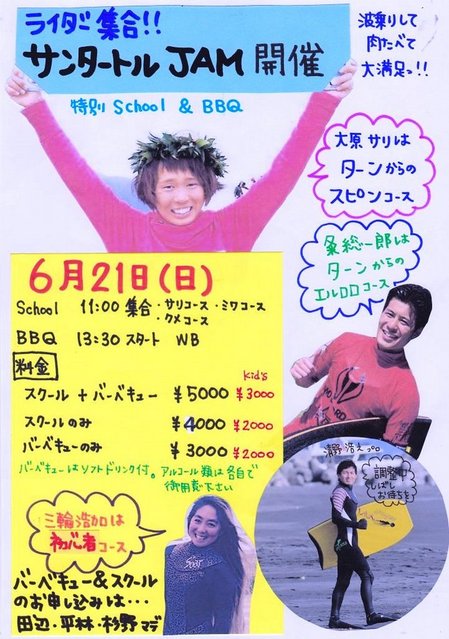 ライダー集合!!
サンタートル JAM 開催
特別 School & BBQ
波乗りして
肉たべて
大満足っ!!
大原サリは
ターンからの
スピンコース
粂総一郎は
ターンからの
エルロロコース
6月21日(日)
School 11:00 集合・サリコース・ミワコース
・クメコース
BBQ 13:30 スタート WB
料金
Kid's
スクール+バーベキュー ¥5000 ¥3000
スクールのみ ¥4000 ¥2000
バーベキューのみ ¥3000 ¥2000
バーベキューはソフトドリンク付。アルコール類は各自で
御用意下さい
清野浩えっプロ
調整中
しばし
お待ちを
三輪浩加は
初心者コース
バーベキュー&スクール
のお申し込みは・・・
田辺・平林・杉野マデ